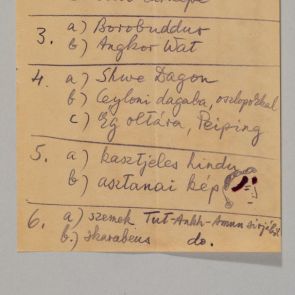 3. a) Borobuddur
b) Angkor Wat
4. a) Shwe Dagon
b) Ceyloni dagaba, oszlopokkal
c) Ég oltára, Peiping
5. a) kasztjeles hindu
b) asztanai kép
6. a) szemek Tut-Ankh-Amun sírjából
b.) skarabeus do.